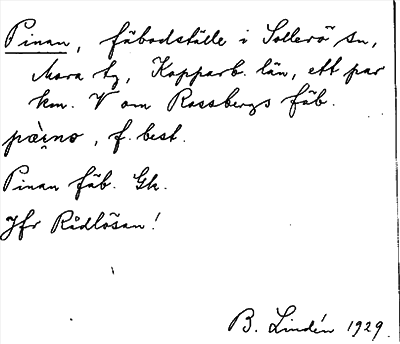 Pinan, fäbodställe i Sollerö sn,
Mora tg, Kopparb. län, ett par
km. V om Rossbergs fäb.
pæ̀ɪ̯no, f. best.
Pinan fäb. Gk.
Jfr Rådlösan!
B. Lindén 1929.